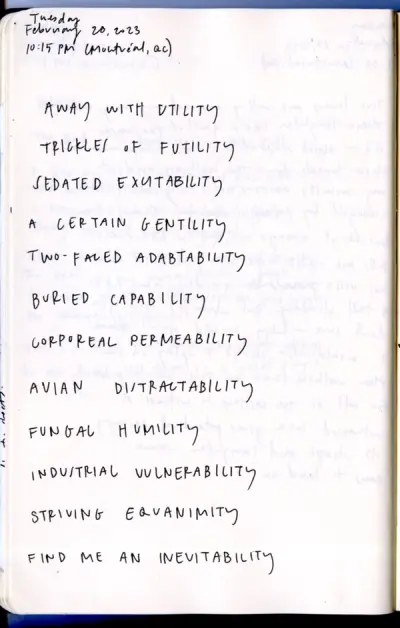 Tuesday
February 20, 2023
10:15 PM (Montréal, QC)
AWAY WITH UTILITY
TRICKLES OF FUTILITY
SEDATED EXCITABILITY
A CERTAIN GENTILITY
TWO-FACED ADABTABILITY
BURIED CAPABILITY
CORPOREAL PERMEABILITY
AVIAN DISTRACTABILITY
FUNGAL HUMILITY
INDUSTRIAL VULNERABILITY
STRIVING EQUANIMITY
FIND ME AN INEVITABILITY